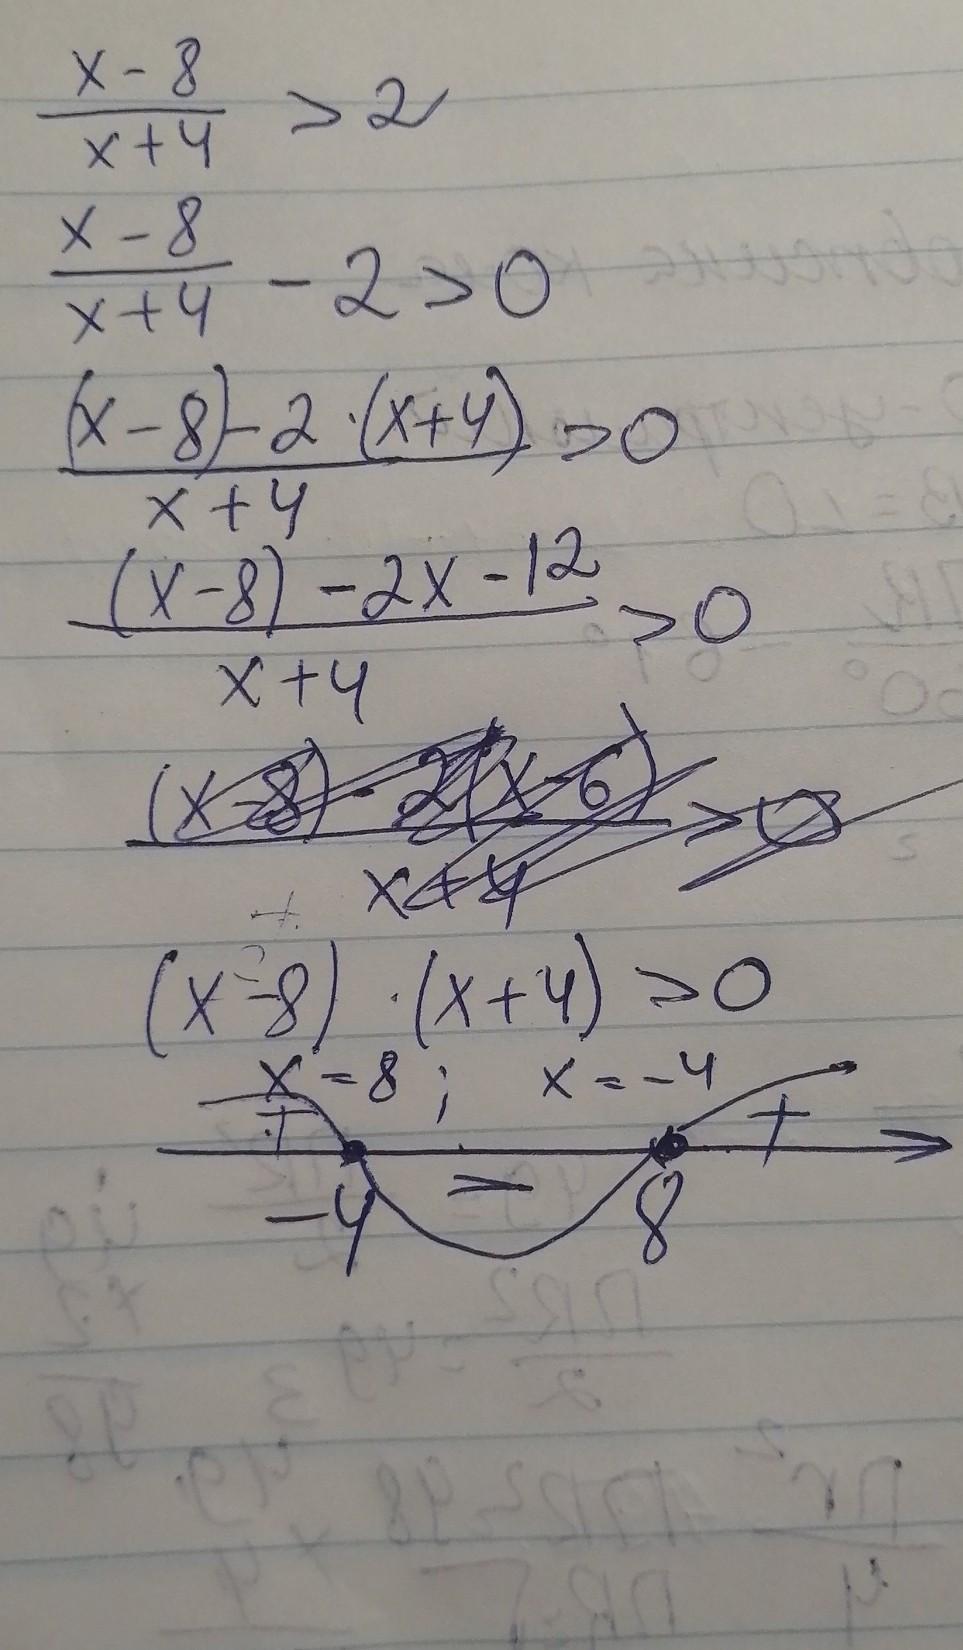 x-8/x+4 > 2
x-8/x+4 - 2 > 0
(x-8)-2·(x+4)/x+4 > 0
(x-8)-2x-12/x+4 > 0
(x-8)-2(x-6)/x+4 > 0
(x-8)·(x+4) > 0
x=8; x=-4
+ - +
-4 8